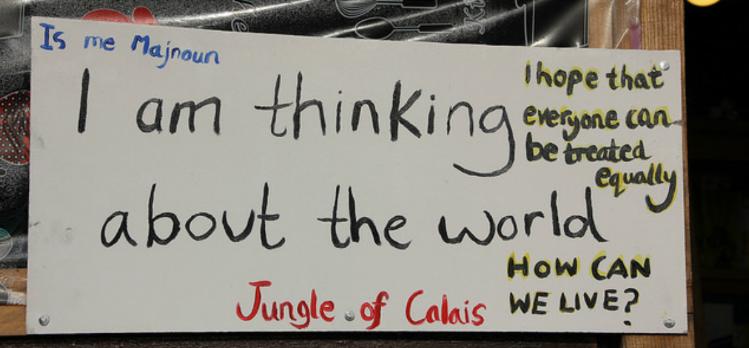 Is me Majnoun
I am thinking
about the world
I hope that
everyone can
be treated
equally
HOW CAN
WE LIVE?
Jungle of Calais